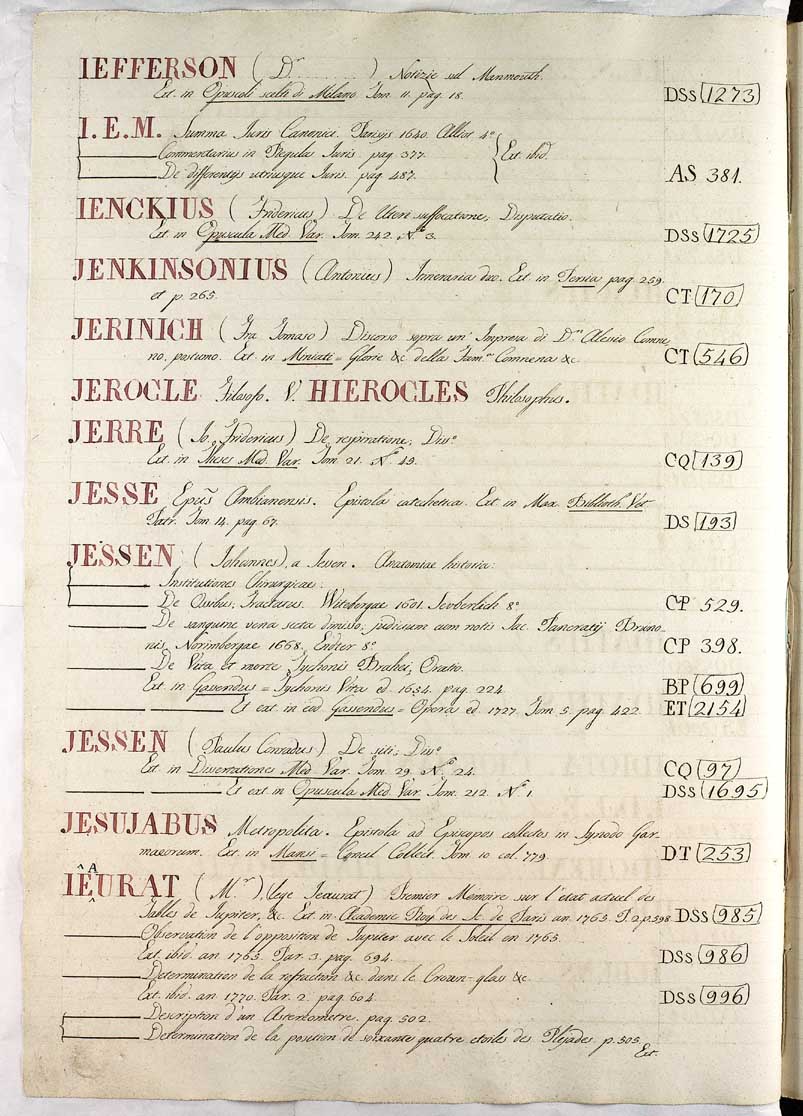 IEFFERSON ( Dr. ........... ) Notizie sul Manmouth.
Ext. in Opuscoli scelti di Milano. Tom. 11. pag. 18. DSs 1273
I.E.M. Summa Iuris Canonici. Parisijs 1640. Alliot 4º
Commentarius in Regulas Iuris. pag. 377. Ext. ibid.
De differentijs utriusque Iuris. pag. 487. AS 381.
IENCKIUS ( Fridericus ) De Uteri suffocatione, Disputatio.
Ext. in Opuscula Med. Var. Tom. 242. Nº 3. DSs 1725
JENKINSONIUS ( Antonius ) Itineraria duo. Ext. in Persia pag. 259.
et p. 265. CT 170
JERINICH ( Fra Tomaso ) Discorso sopra un' Impresa di Dn Alessio Comne
no, postumo. Ext. in Miniati = Glorie &c. della Famª Comnena &c. CT 546
JEROCLE Filosofo. V. HIEROCLES Philosophus.
JERRE ( Io. Fridericus ) De respiratione, Disº
Ext. in Theses Med. Var. Tom. 21. Nº 49. CQ 139
JESSE Epus Ambianensis. Epistola catechetica. Ext. in Max. Biblioth. Vet.
Patr. Tom 14. pag. 67. DS 193
JESSEN ( Johannes ), a Jessen. Anatomiae historia.
Institutiones Chirurgicae.
De Ossibus, Tractatus. Witebergae 1601. Sevberlich 8º CP 529.
De sanguine vena secta dimisso, judicium cum notis Jac. Pancratij Bruno-
nis. Norimbergae 1668. Endter 8º CP 398.
De Vita et morte Tychonis Brahei, Oratio.
Ext. in Gassendus = Tychonis Vita ed. 1654. pag. 224. BP 699
Et ext. in eod. Gassendus = Opera ed. 1727. Tom 5. pag. 422. ET 2154
JESSEN ( Paulus Conradus ) De siti, Disº
Ext. in Dissertationes Med. Var. Tom. 29. Nº 24. CQ 97
Et ext. in Opuscula Med. Var. Tom. 212. Nº 1. DSs 1695
JESUJABUS Metropolita. Epistola ad Episcopos collectos in Synodo Gar-
masorum. Ext. in Mansi = Concil. Collect. Tom. 10 col. 779. DT 253
IÊAURAT ( Mr. ), lege Jeaurat ) Premier Memoire sur l'état actuel des
Tables de Jupiter, &c. Ext. in Academie Roy. des Sc. de Paris an. 1765. P. 2. p. 598. DSs 985
Observation de l'opposition de Jupiter avec le Soleil en 1765.
Ext. ibid. an. 1765. Par. 3. pag. 694. DSs 986
Determination de la refraction &c. dans le Crown-glass &c.
Ext. ibid. an. 1770. Par. 2. pag. 604. DSs 996
Description d'un Asteriometre. pag. 502.
Determination de la position de soixante quatre etoiles des Plejades. p. 505.
Ext.